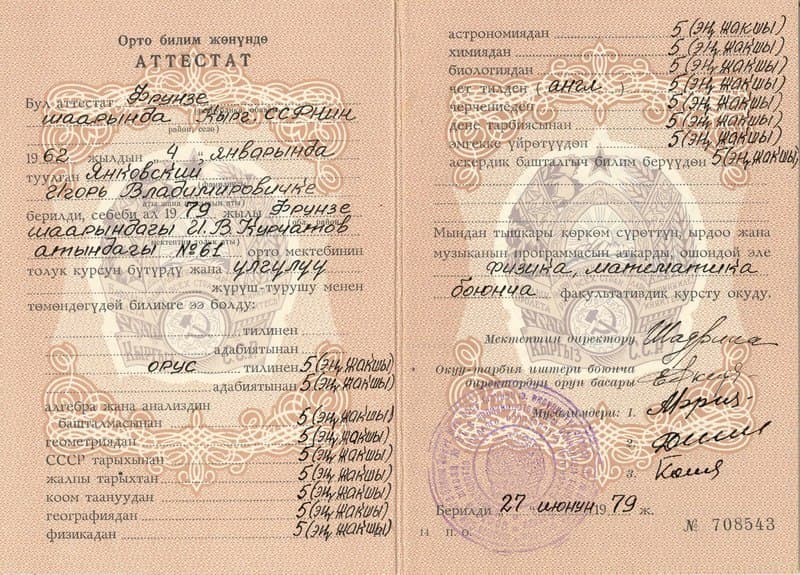 Орто билим жөнүндө
АТТЕСТАТ
Бул аттестат Фрунзе
шаарында Кырг. ССРнин
район, село)
1962 жылдын "4" январында
туулган Янковский
Игорь Владимировичке
берилди, себеби ал 1979 жылы Фрунзе
шаарындагы И.В Курчатов
атындагы №61 орто мектебинин
толук курсун бүтүрдү жана үлгүлүү
жүрүш-турушу менен
төмөндөгүдөй билимге ээ болду:
тилинен
адабиятынан
орус тилинен 5 (эң жакшы)
адабиятынан 5 (эң жакшы)
алгебра жана анализдин
башталмасынан 5 (эң жакшы)
геометриядан 5 (эң жакшы)
СССР тарыхынан 5 (эң жакшы)
жалпы тарыхтан 5 (эң жакшы)
коом таануудан 5 (эң жакшы)
географиядан 5 (эң жакшы)
физикадан 5 (эң жакшы)
астрономиядан 5 (эң жакшы)
химиядан 5 (эң жакшы)
биологиядан 5 (эң жакшы)
чет тилден (англ.) 5 (эң жакшы)
черчениеден 5 (эң жакшы)
дене тарбиясынан 5 (эң жакшы)
эмгекке үйрөтүүдөн 5 (эң жакшы)
аскердик башталгыч билим берүүдөн 5 (эң жакшы)
Мындан тышкары көркөм сүрөттүн, ырдоо жана
музыканын программасын аткарды, ошондой эле
физика, математика
боюнча факультативдик курсту окуду.
Мектептин директору
Окуу-тарбия иштери боюнча
директордун орун басары
Мугалимдери: 1.
2.
3.
Берилди "27" июнун 1979 ж.
14 П. О.
№ 708543